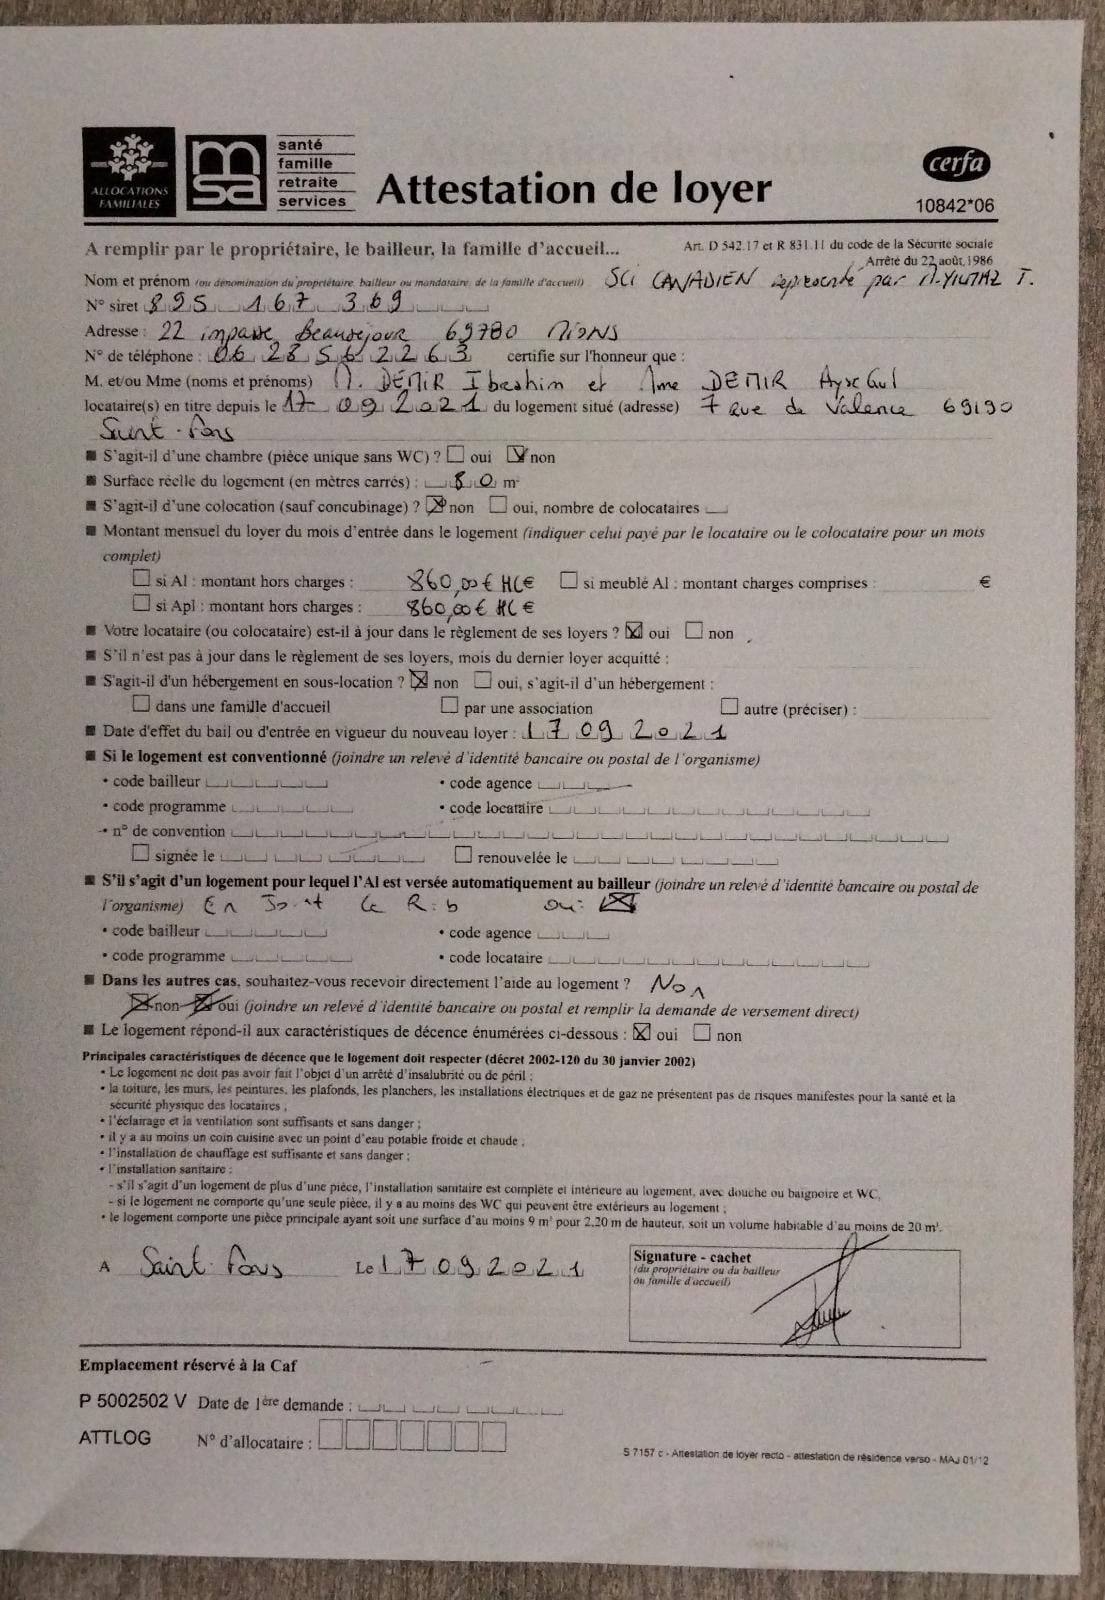 ALLOCATIONS
FAMILIALES
msa
santé
famille
retraite
services
Attestation de loyer
cerfa
10842*06
A remplir par le propriétaire, le bailleur, la famille d'accueil...
Art. D 542.17 et R 831.11 du code de la Sécurité sociale
Arrêté du 22 août 1986
Nom et prénom (ou dénomination du propriétaire, bailleur ou mandataire, de la famille d'accueil) SCI CANADIEN représenté par M. YILMAZ T.
N° siret 895 167 369
Adresse : 22 impasse Beauséjour 69780 MIONS
N° de téléphone : 06 28 56 22 63 certifie sur l'honneur que :
M. et/ou Mme (noms et prénoms) M. DEMIR Ibrahim et Mme DEMIR Ayse Gul
locataire(s) en titre depuis le 17 09 2021 du logement situé (adresse) 7 rue de Valence 69190
Saint-Fons
■ S'agit-il d'une chambre (pièce unique sans WC) ? ☐ oui ☒ non
■ Surface réelle du logement (en mètres carrés) : 80 m²
■ S'agit-il d'une colocation (sauf concubinage) ? ☒ non ☐ oui, nombre de colocataires
■ Montant mensuel du loyer du mois d'entrée dans le logement (indiquer celui payé par le locataire ou le colocataire pour un mois
complet)
☐ si Al : montant hors charges : 860,00 € HC € ☐ si meublé Al : montant charges comprises : €
☐ si Apl : montant hors charges : 860,00 € HC €
■ Votre locataire (ou colocataire) est-il à jour dans le règlement de ses loyers ? ☒ oui ☐ non
■ S'il n'est pas à jour dans le règlement de ses loyers, mois du dernier loyer acquitté :
■ S'agit-il d'un hébergement en sous-location ? ☒ non ☐ oui, s'agit-il d'un hébergement :
☐ dans une famille d'accueil ☐ par une association ☐ autre (préciser) :
■ Date d'effet du bail ou d'entrée en vigueur du nouveau loyer : 17 09 2021
■ Si le logement est conventionné (joindre un relevé d'identité bancaire ou postal de l'organisme)
• code bailleur • code agence
• code programme • code locataire
• n° de convention
☐ signée le ☐ renouvelée le
■ S'il s'agit d'un logement pour lequel l'Al est versée automatiquement au bailleur (joindre un relevé d'identité bancaire ou postal de
l'organisme) En Joint le Rib oui ☒
• code bailleur • code agence
• code programme • code locataire
■ Dans les autres cas, souhaitez-vous recevoir directement l'aide au logement ? Non
☒ non ☒ oui (joindre un relevé d'identité bancaire ou postal et remplir la demande de versement direct)
■ Le logement répond-il aux caractéristiques de décence énumérées ci-dessous : ☒ oui ☐ non
Principales caractéristiques de décence que le logement doit respecter (décret 2002-120 du 30 janvier 2002)
• Le logement ne doit pas avoir fait l'objet d'un arrêté d'insalubrité ou de péril ;
• la toiture, les murs, les peintures, les plafonds, les planchers, les installations électriques et de gaz ne présentent pas de risques manifestes pour la santé et la
sécurité physique des locataires ;
• l'éclairage et la ventilation sont suffisants et sans danger ;
• il y a au moins un coin cuisine avec un point d'eau potable froide et chaude ;
• l'installation de chauffage est suffisante et sans danger ;
• l'installation sanitaire :
- s'il s'agit d'un logement de plus d'une pièce, l'installation sanitaire est complète et intérieure au logement, avec douche ou baignoire et WC,
- si le logement ne comporte qu'une seule pièce, il y a au moins des WC qui peuvent être extérieurs au logement ;
• le logement comporte une pièce principale ayant soit une surface d'au moins 9 m² pour 2,20 m de hauteur, soit un volume habitable d'au moins de 20 m³.
A Saint-Fons Le 17 09 2021
Signature - cachet
(du propriétaire ou du bailleur
ou famille d'accueil)
Emplacement réservé à la Caf
P 5002502 V Date de 1ère demande :
ATTLOG N° d'allocataire :
S 7157 c - Attestation de loyer recto - attestation de résidence verso - MAJ 01/12